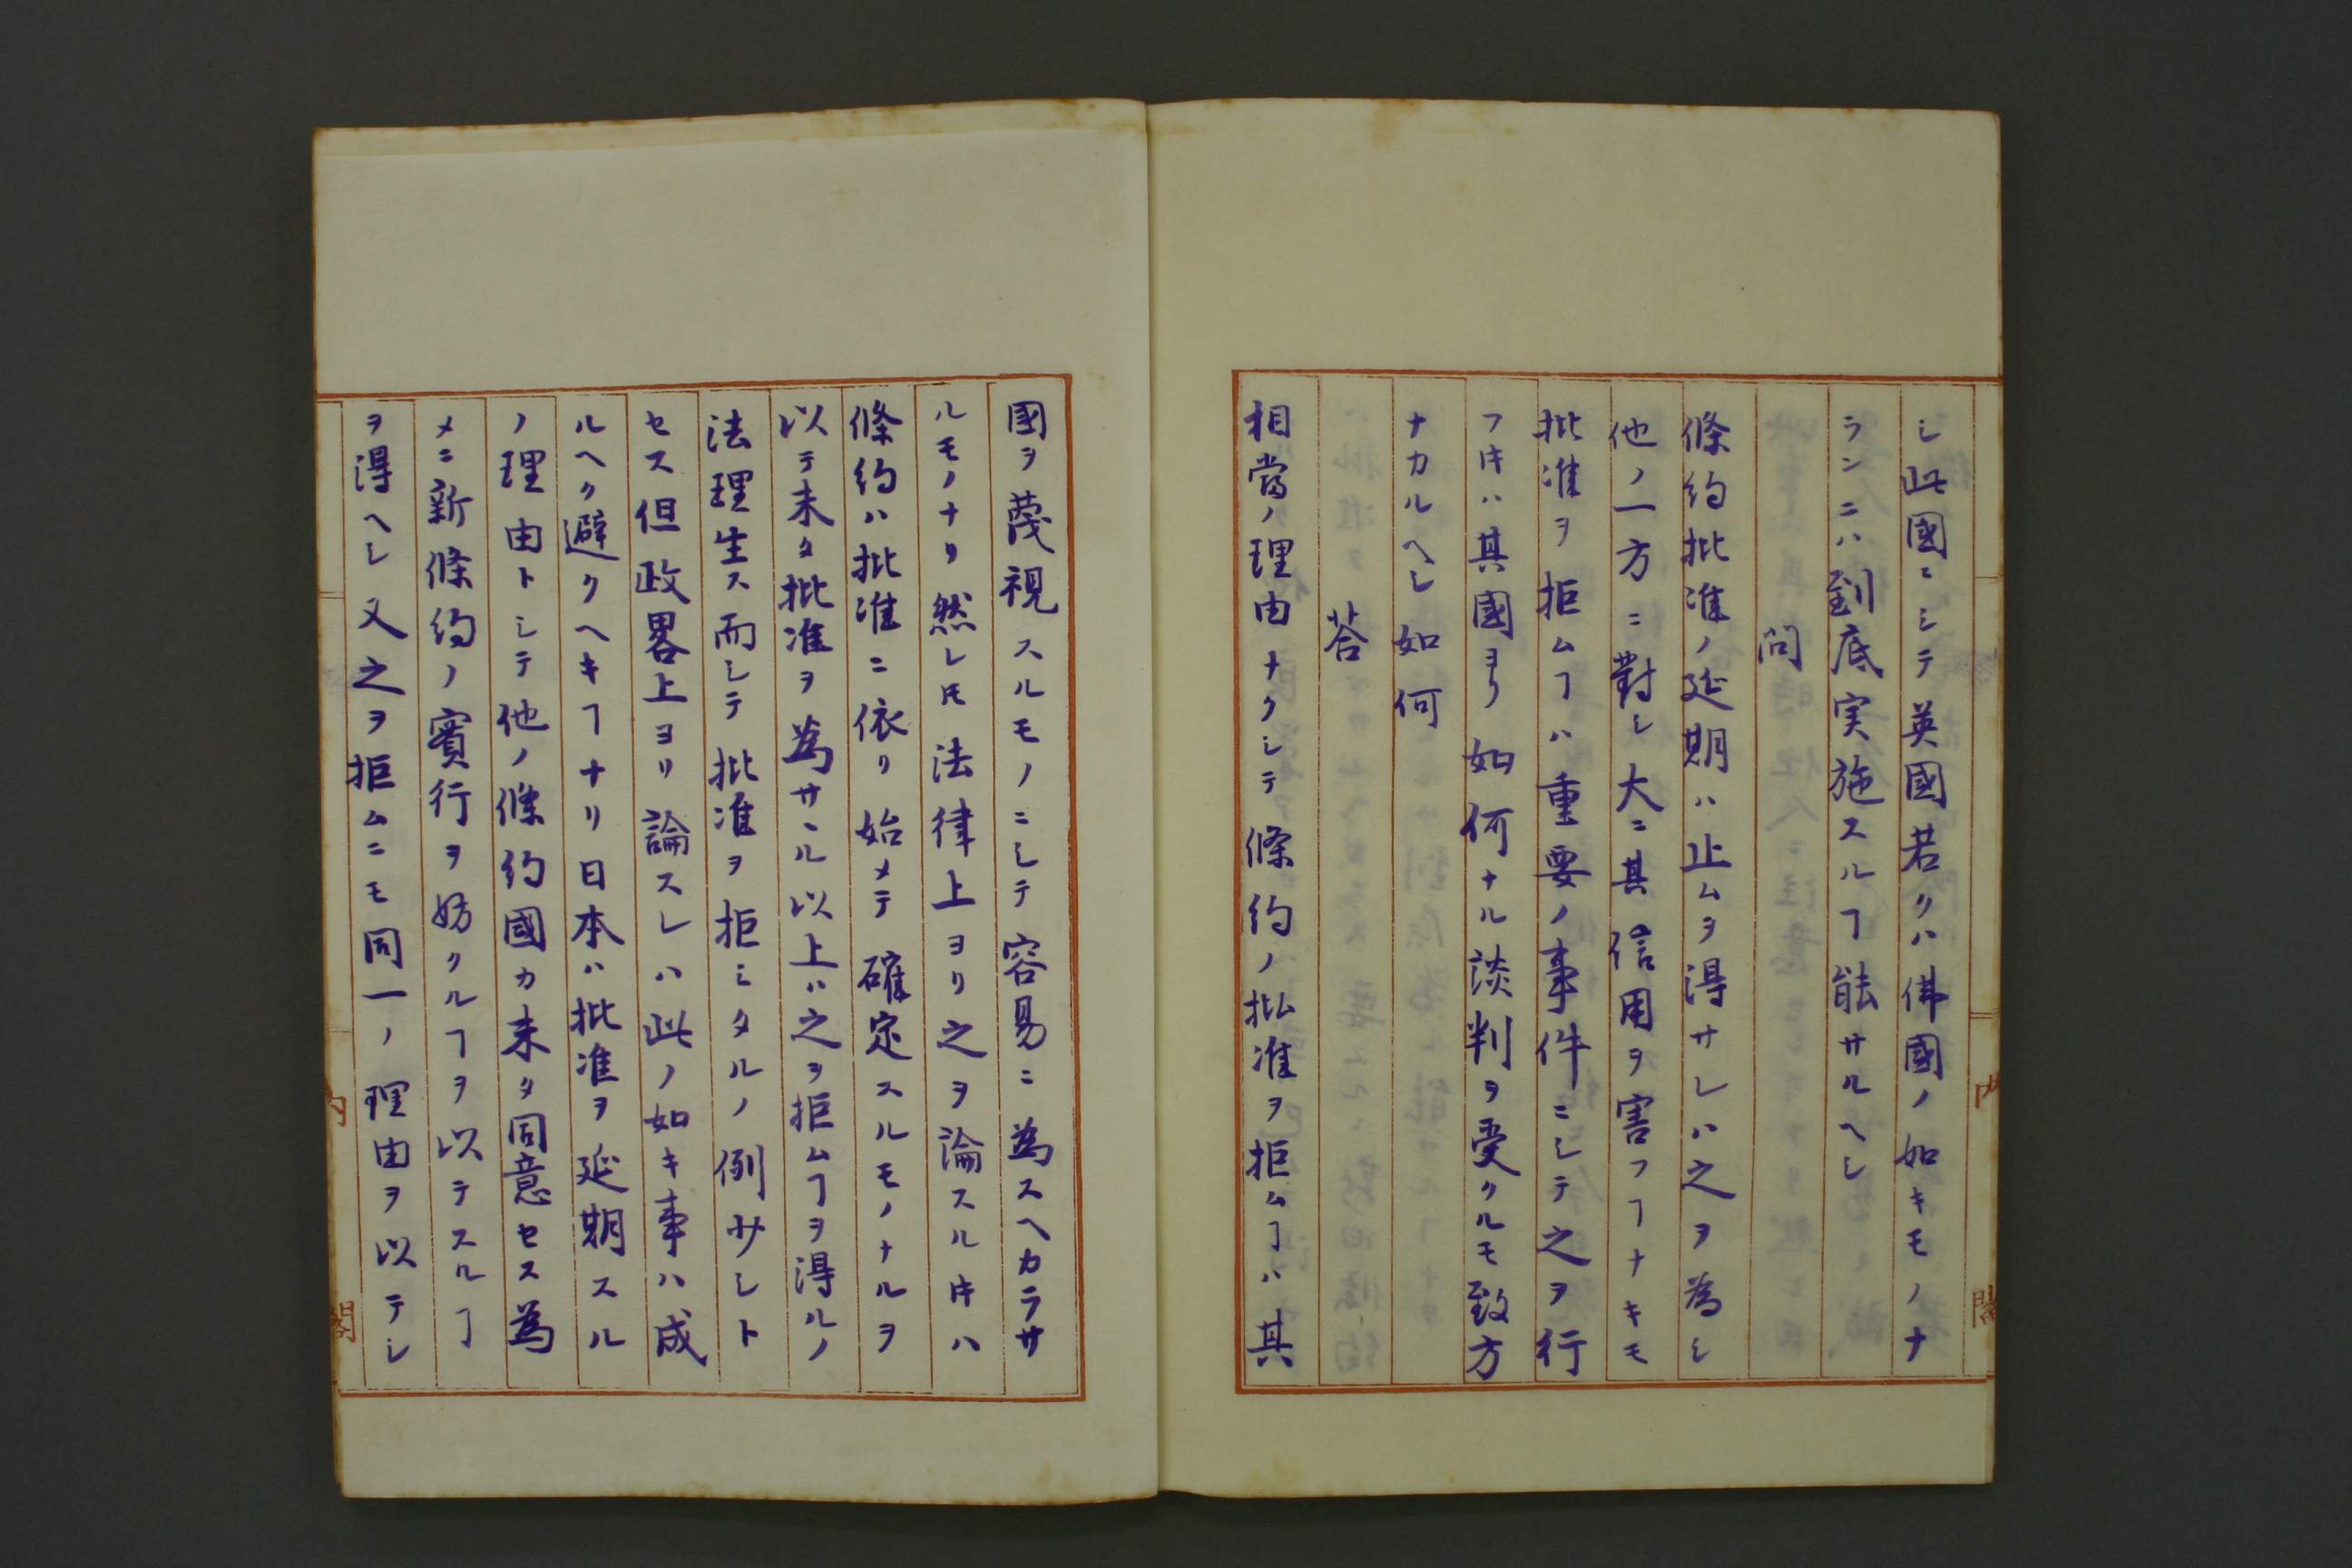 シ此國ニシテ英國若クハ佛國ノ如キモノナ
ランニハ到底実施スルヿ能サルヘシ
問
條約批准ノ延期ハ止ムヲ得サレハ之ヲ為シ
他ノ一方ニ對シ大ニ其信用ヲ害フヿナキモ
批准ヲ拒ムヿハ重要ノ事件ニシテ之ヲ行
フ𪜈ハ其國ヨリ如何ナル談判ヲ受クルモ致方
ナカルヘシ如何
荅
相當ノ理由ナクシテ條約ノ批准ヲ拒ムヿハ其
國ヲ蔑視スルモノニシテ容易ニ為スヘカラサ
ルモノナリ然レ𪜈法律上ヨリ之ヲ論スル寸ハ
條約ハ批准ニ依リ始メテ確定スルモノナルヲ
以テ未タ批准ヲ為サヽル以上ハ之ヲ拒ムヿヲ得ルノ
法理生ス而シテ批准ヲ拒ミタルノ例少シト
セス但政畧上ヨリ論スレハ此ノ如キ事ハ成
ルヘク避クヘキヿナリ日本ハ批准ヲ延期スル
ノ理由トシテ他ノ條約國カ未タ同意セス為
メニ新條約ノ實行ヲ妨クルヿヲ以テスルヿ
ヲ得ヘシ又之ヲ拒ムニモ同一ノ理由ヲ以テシ
内閣
内閣